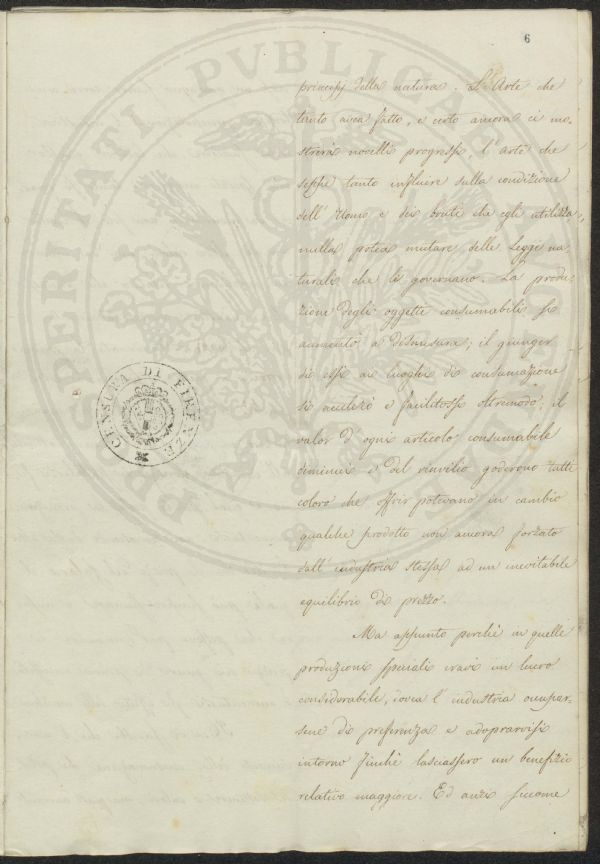 6
processi della natura. L'Arte che
tanto avea fatto, e certo ancora ci mo-
strerà novelli progressi, l'arte che
seppe tanto influire sulla condizione
dell'Uomo e dei bruti che egli utilizza
nulla potea mutare delle Legge na-
turali che li governano. La produ-
zione degli oggetti consumabili si
aumentò a dismisura; il giunger
di essi ai luoghi di consumazione
si accelerò e facilitossi oltremodo; il
valor d'ogni articolo consumabile
diminuì e del rinvilio goderono tutti
coloro che offrir potevano in cambio
qualche prodotto non ancora forzato
dall'industria stessa ad un inevitabile
equilibrio di prezzo.
Ma appunto perchè in quelle
produzioni speciali eravi un lucro
considerabile, dovea l'industria occupar-
sene di preferenza e adoprarvisi
intorno finchè lasciassero un benefizio
relativo maggiore. Ed anzi siccome
CENSURA DI FIRENZE
PROSPERITATI PUBLICAE